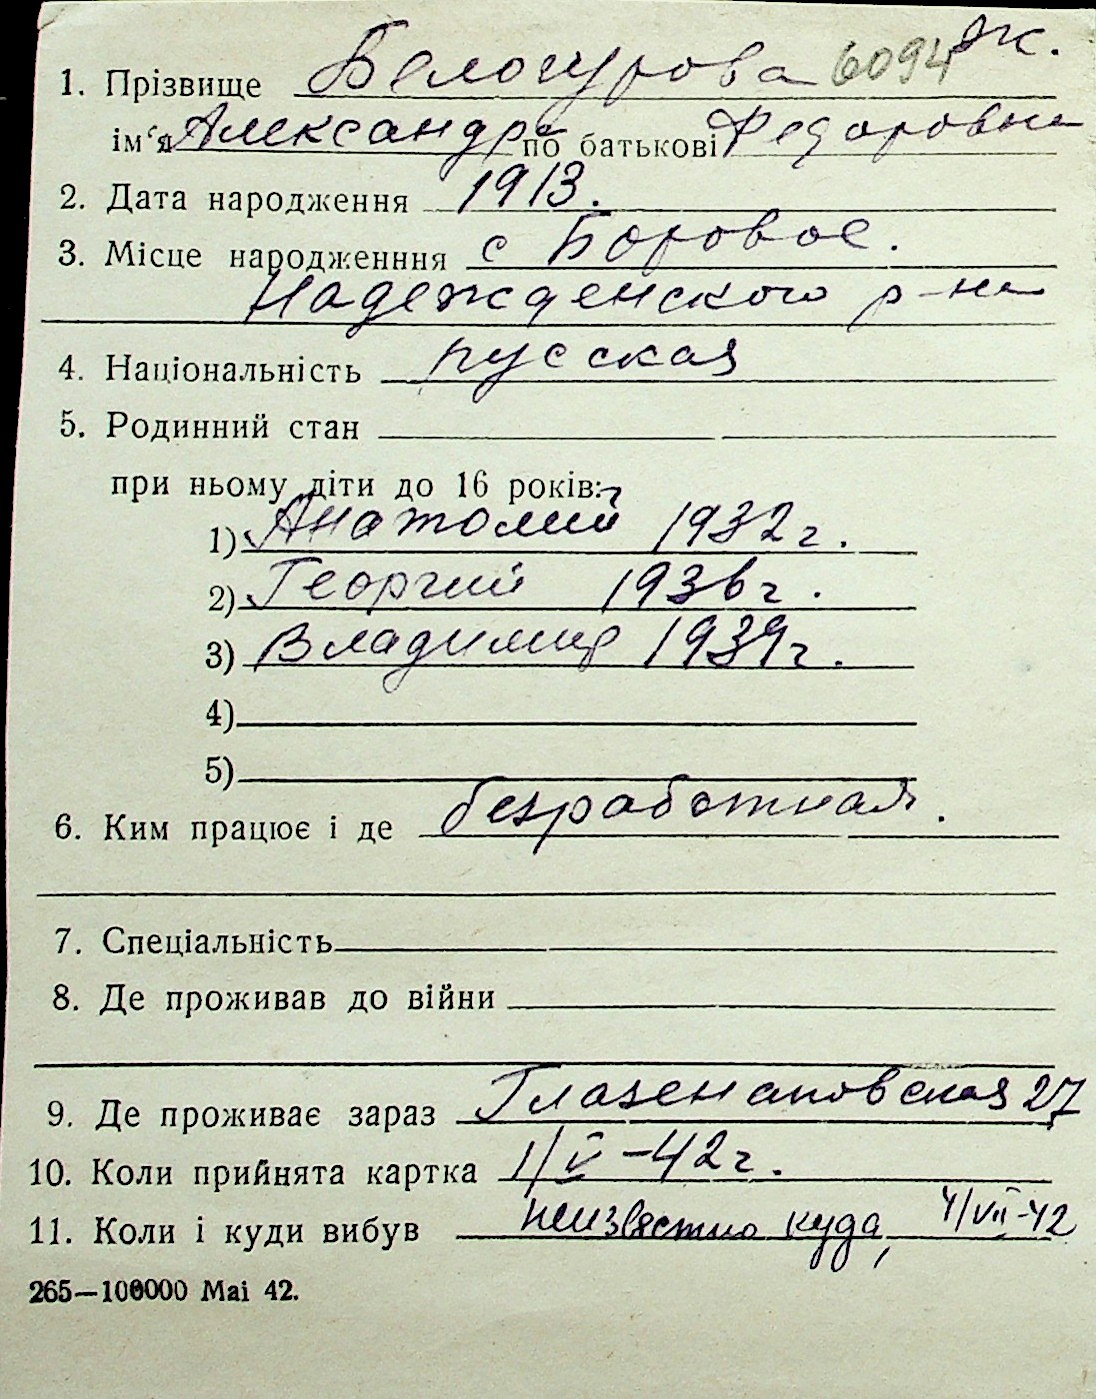 1. Прізвище Белогурова 6094 ж.
ім‘я Александр по батькові Федоровна
2. Дата народження 1913.
3. Місце народженння с Боровое.
Надежденского р-на
4. Національність русская
5. Родинний стан
при ньому діти до 16 років:
1) Анатолий 1932 г.
2) Георгий 1936 г.
3) Владимир 1939 г.
4)
5)
6. Ким працює і де безработная.
7. Спеціальність
8. Де проживав до війни
9. Де проживає зараз Глазенаповская 27
10. Коли прийнята картка 1/V-42 г.
11. Коли і куди вибув неизвестно куда, 4/VII-42
265—100000 Mai 42.